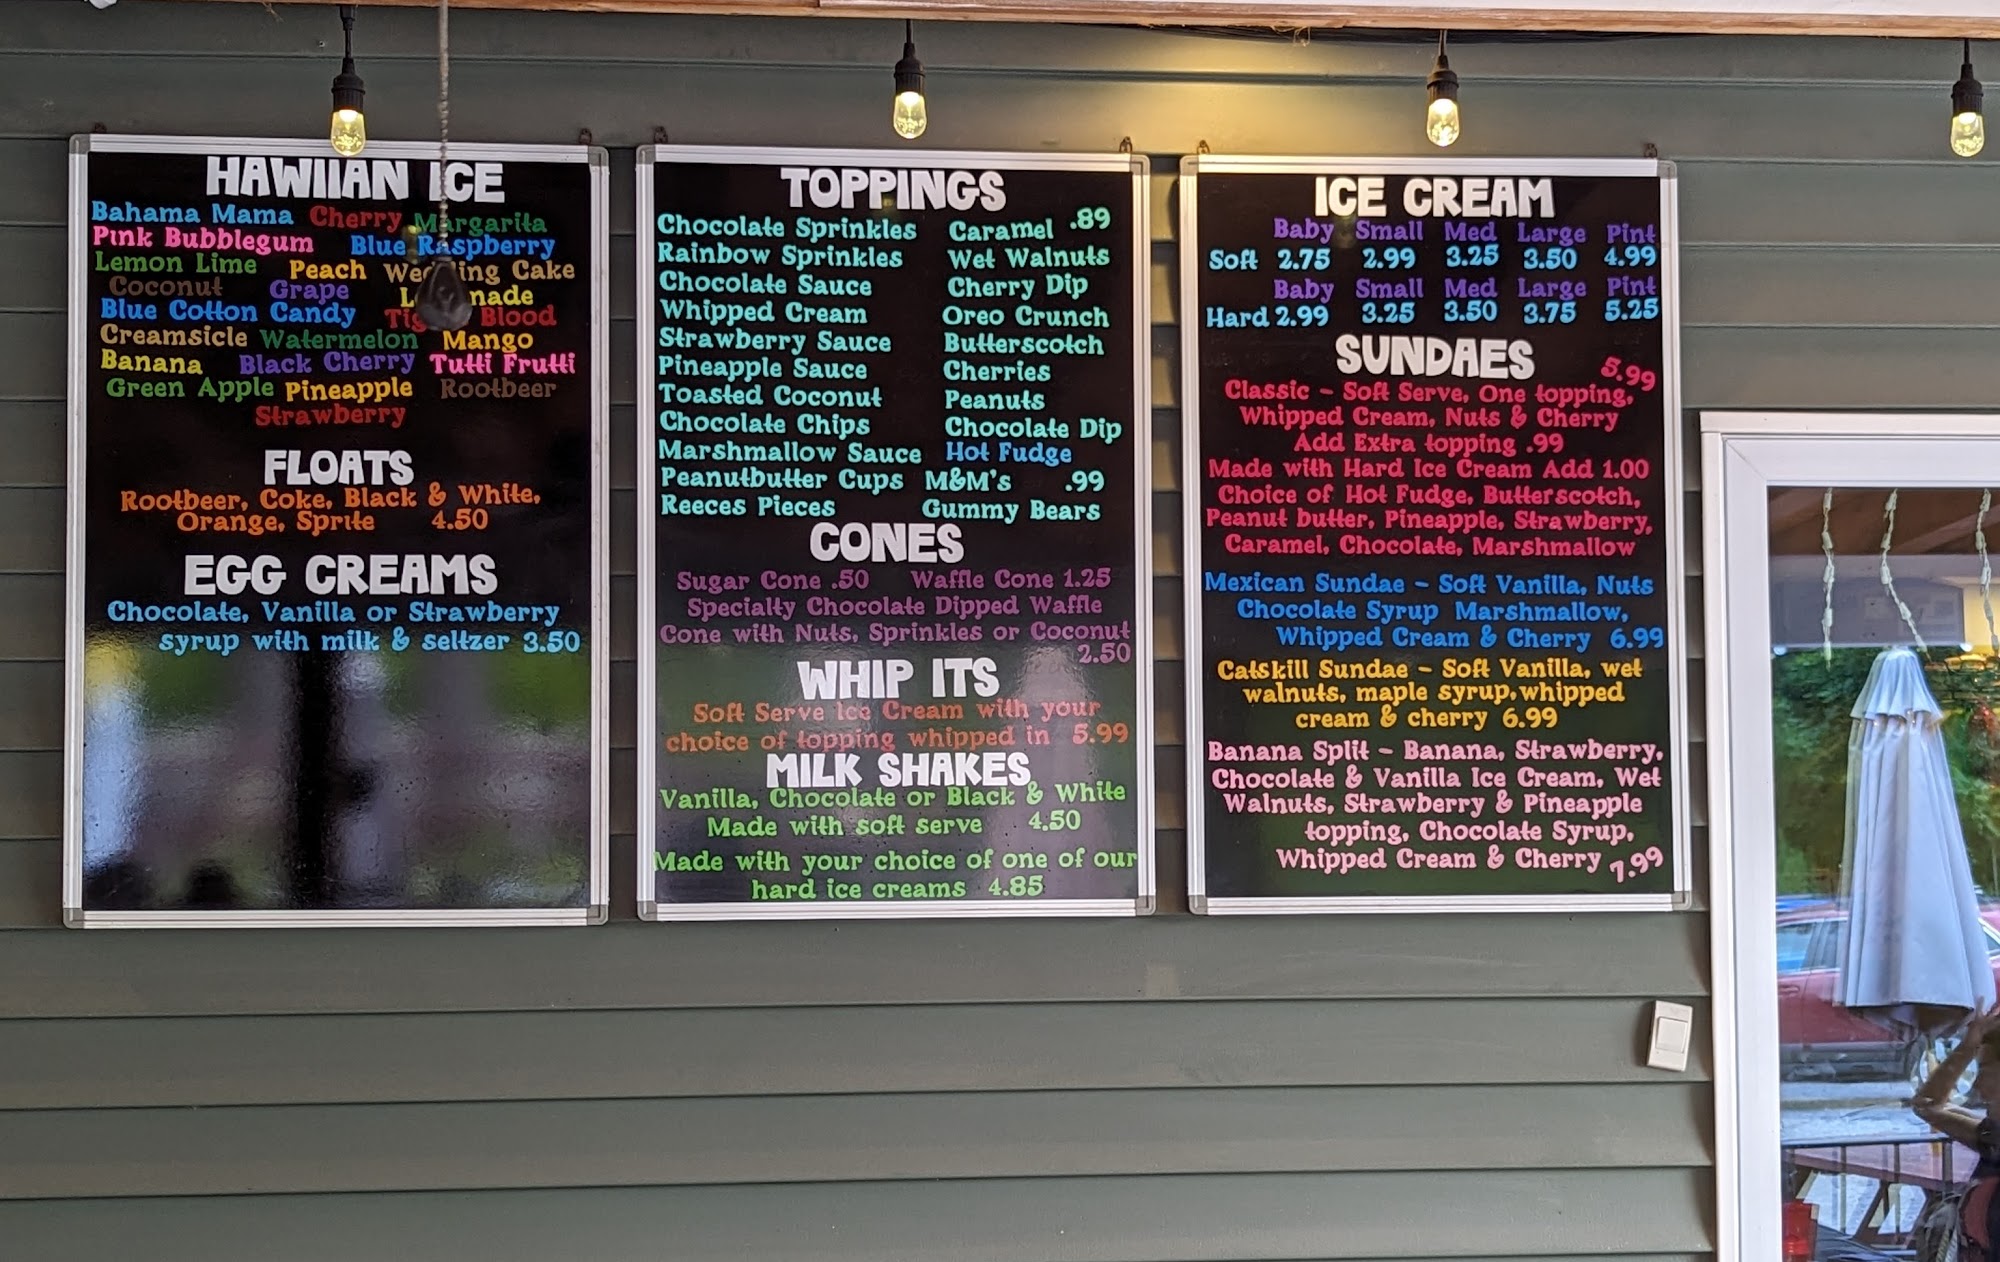 HAWIIAN ICE
Bahama Mama Cherry Margarita
Pink Bubblegum Blue Raspberry
Lemon Lime Peach Wedding Cake
Coconut Grape Lemonade
Blue Cotton Candy Blood
Creamsicle Watermelon Mango
Banana Black Cherry Tutti Frutti
Green Apple Pineapple Rootbeer
Strawberry
FLOATS
Rootbeer, Coke, Black & White,
Orange, Sprite 4.50
EGG CREAMS
Chocolate, Vanilla or Strawberry
syrup with milk & seltzer 3.50
TOPPINGS
Chocolate Sprinkles Caramel .89
Rainbow Sprinkles Wet Walnuts
Chocolate Sauce Cherry Dip
Whipped Cream Oreo Crunch
Strawberry Sauce Butterscotch
Pineapple Sauce Cherries
Toasted Coconut Peanuts
Chocolate Chips Chocolate Dip
Marshmallow Sauce Hot Fudge
Peanutbutter Cups M&M's .99
Reeces Pieces Gummy Bears
CONES
Sugar Cone .50 Waffle Cone 1.25
Specialty Chocolate Dipped Waffle
Cone with Nuts, Sprinkles or Coconut
2.50
WHIP ITS
Soft Serve Ice Cream with your
choice of topping whipped in 5.99
MILK SHAKES
Vanilla, Chocolate or Black & White
Made with soft serve 4.50
Made with your choice of one of our
hard ice creams 4.85
ICE CREAM
Baby Small Med Large Pint
Soft 2.75 2.99 3.25 3.50 4.99
Baby Small Med Large Pint
Hard 2.99 3.25 3.50 3.75 5.25
SUNDAES
5.99
Classic - Soft Serve, One topping,
Whipped Cream, Nuts & Cherry
Add Extra topping .99
Made with Hard Ice Cream Add 1.00
Choice of Hot Fudge, Butterscotch,
Peanut butter, Pineapple, Strawberry,
Caramel, Chocolate, Marshmallow
Mexican Sundae - Soft Vanilla, Nuts
Chocolate Syrup Marshmallow,
Whipped Cream & Cherry 6.99
Catskill Sundae - Soft Vanilla, wet
walnuts, maple syrup, whipped
cream & cherry 6.99
Banana Split - Banana, Strawberry,
Chocolate & Vanilla Ice Cream, Wet
Walnuts, Strawberry & Pineapple
topping, Chocolate Syrup,
Whipped Cream & Cherry 7.99